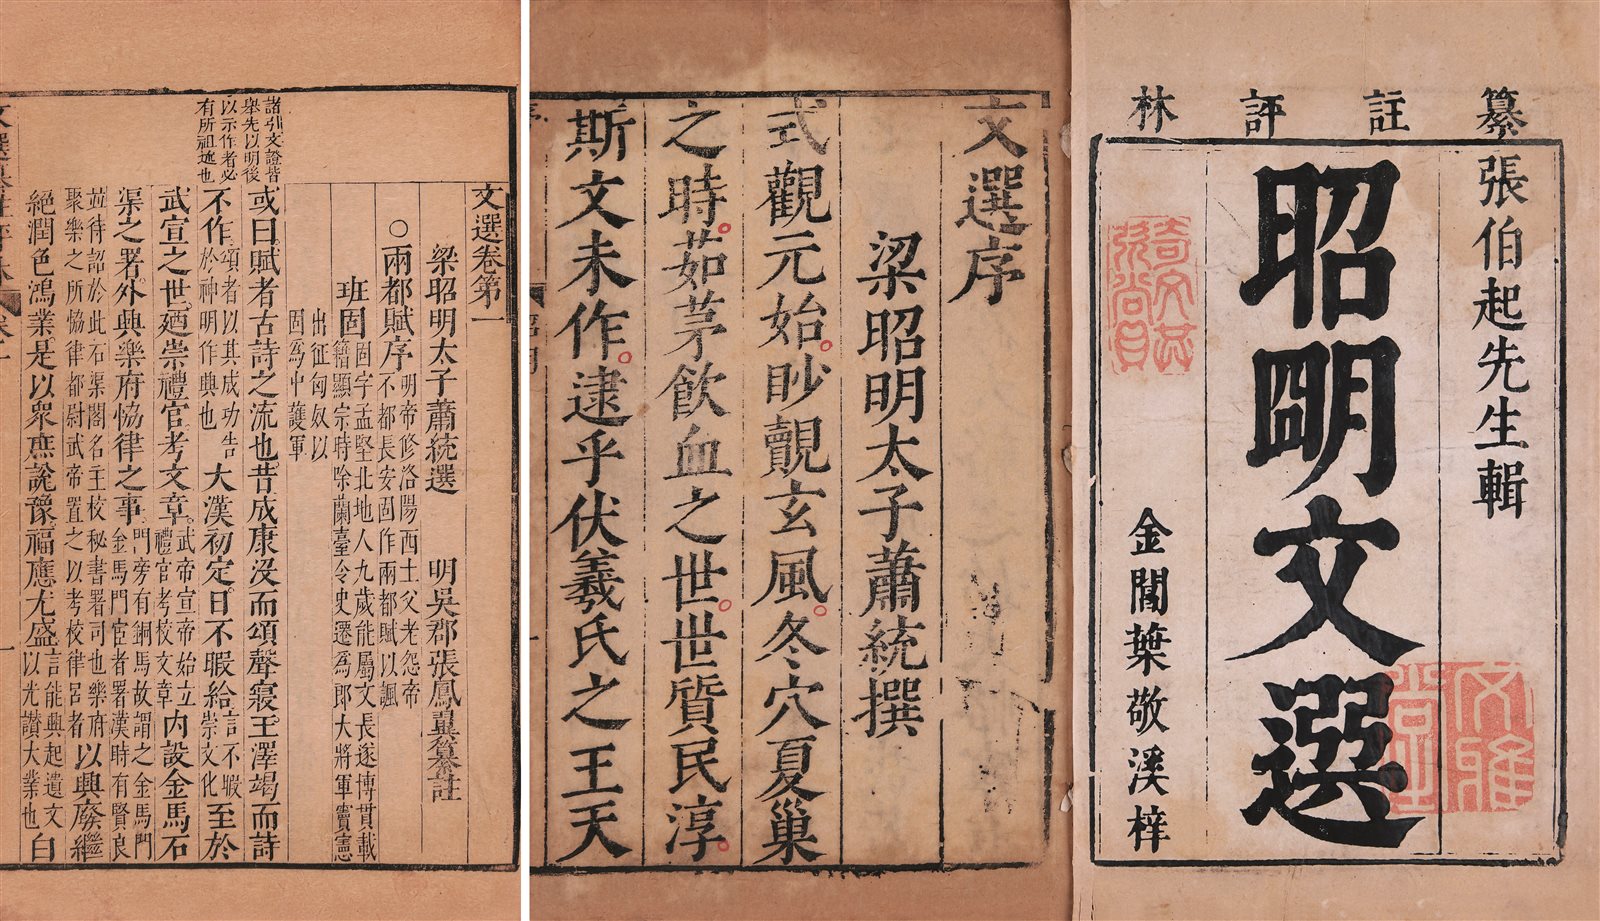 纂註評林
張伯起先生輯
昭明文選
金閶葉敬溪梓
文雅堂
文選序
梁昭明太子蕭統撰
式觀元始眇覿玄風冬穴夏巢
之時茹茅飲血之世世質民淳
斯文未作逮乎伏羲氏之王天
文選卷第一
梁昭明太子蕭統選 明吳郡張鳳翼纂註
○兩都賦序明帝修洛陽西土父老怨帝不都長安固作兩都賦以諷
班固固字孟堅北地人九歲能屬文長遂博貫載籍顯宗時除蘭臺令史遷爲郎大將軍竇憲
出征匈奴以
固爲中護軍
諸引文證皆
舉先以明後
以示作者必
有所祖述也
或曰賦者古詩之流也昔成康沒而頌聲寢王澤竭而詩
不作頌者以其成功告於神明作興也大漢初定日不暇給言不暇崇文化至於
武宣之世廼崇禮官考文章武帝宣帝始立禮官考校文章內設金馬石
渠之署外興樂府恊律之事門旁有銅馬故謂之金馬門金馬門宦者署漢時有賢良
並待詔於此石渠閣名主校秘書署司也樂府聚樂之所恊律都尉武帝置之以考校律呂者以興廢繼
絕潤色鴻業是以衆庶說豫福應尤盛言能興起遺文以光讚大業也白